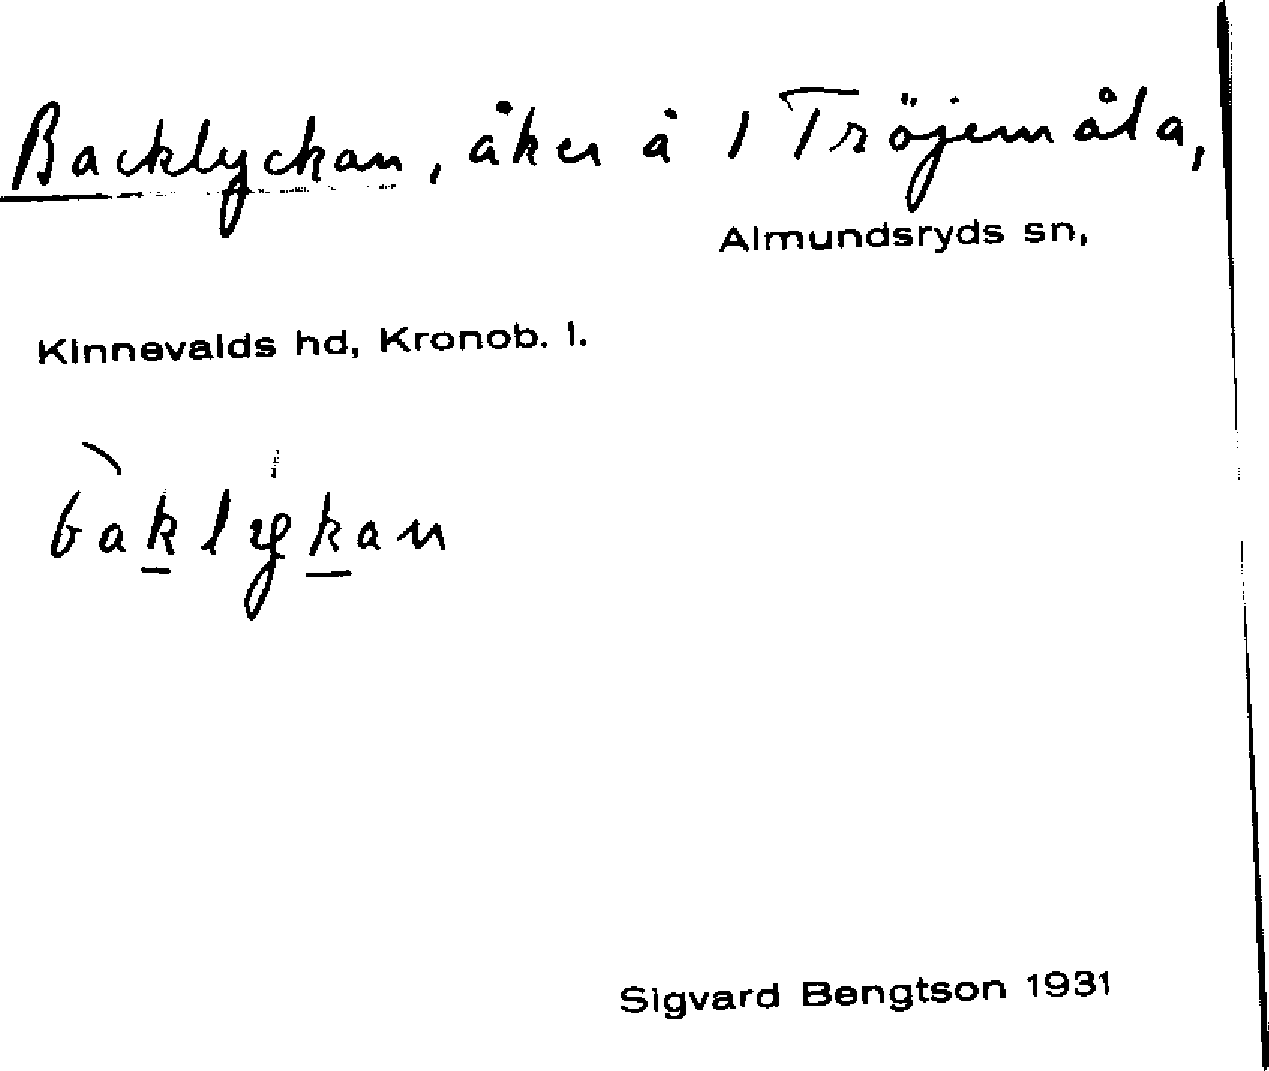 Backlyckan, åker å 1 Tröjemåla,
Almundsryds sn,
Kinnevalds hd, Kronob. l.
bàklykan
Sigvard Bengtson 1931